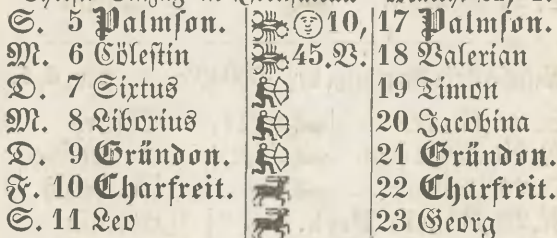 S. 5 Palmson. 10, 17 Palmson.
M. 6 Cölestin 45.V. 18 Valerian
D. 7 Sixtus 19 Timon
M. 8 Liborius 20 Jacobina
D. 9 Gründon. 21 Gründon.
F. 10 Charfreit. 22 Charfreit.
S. 11 Leo 23 Georg